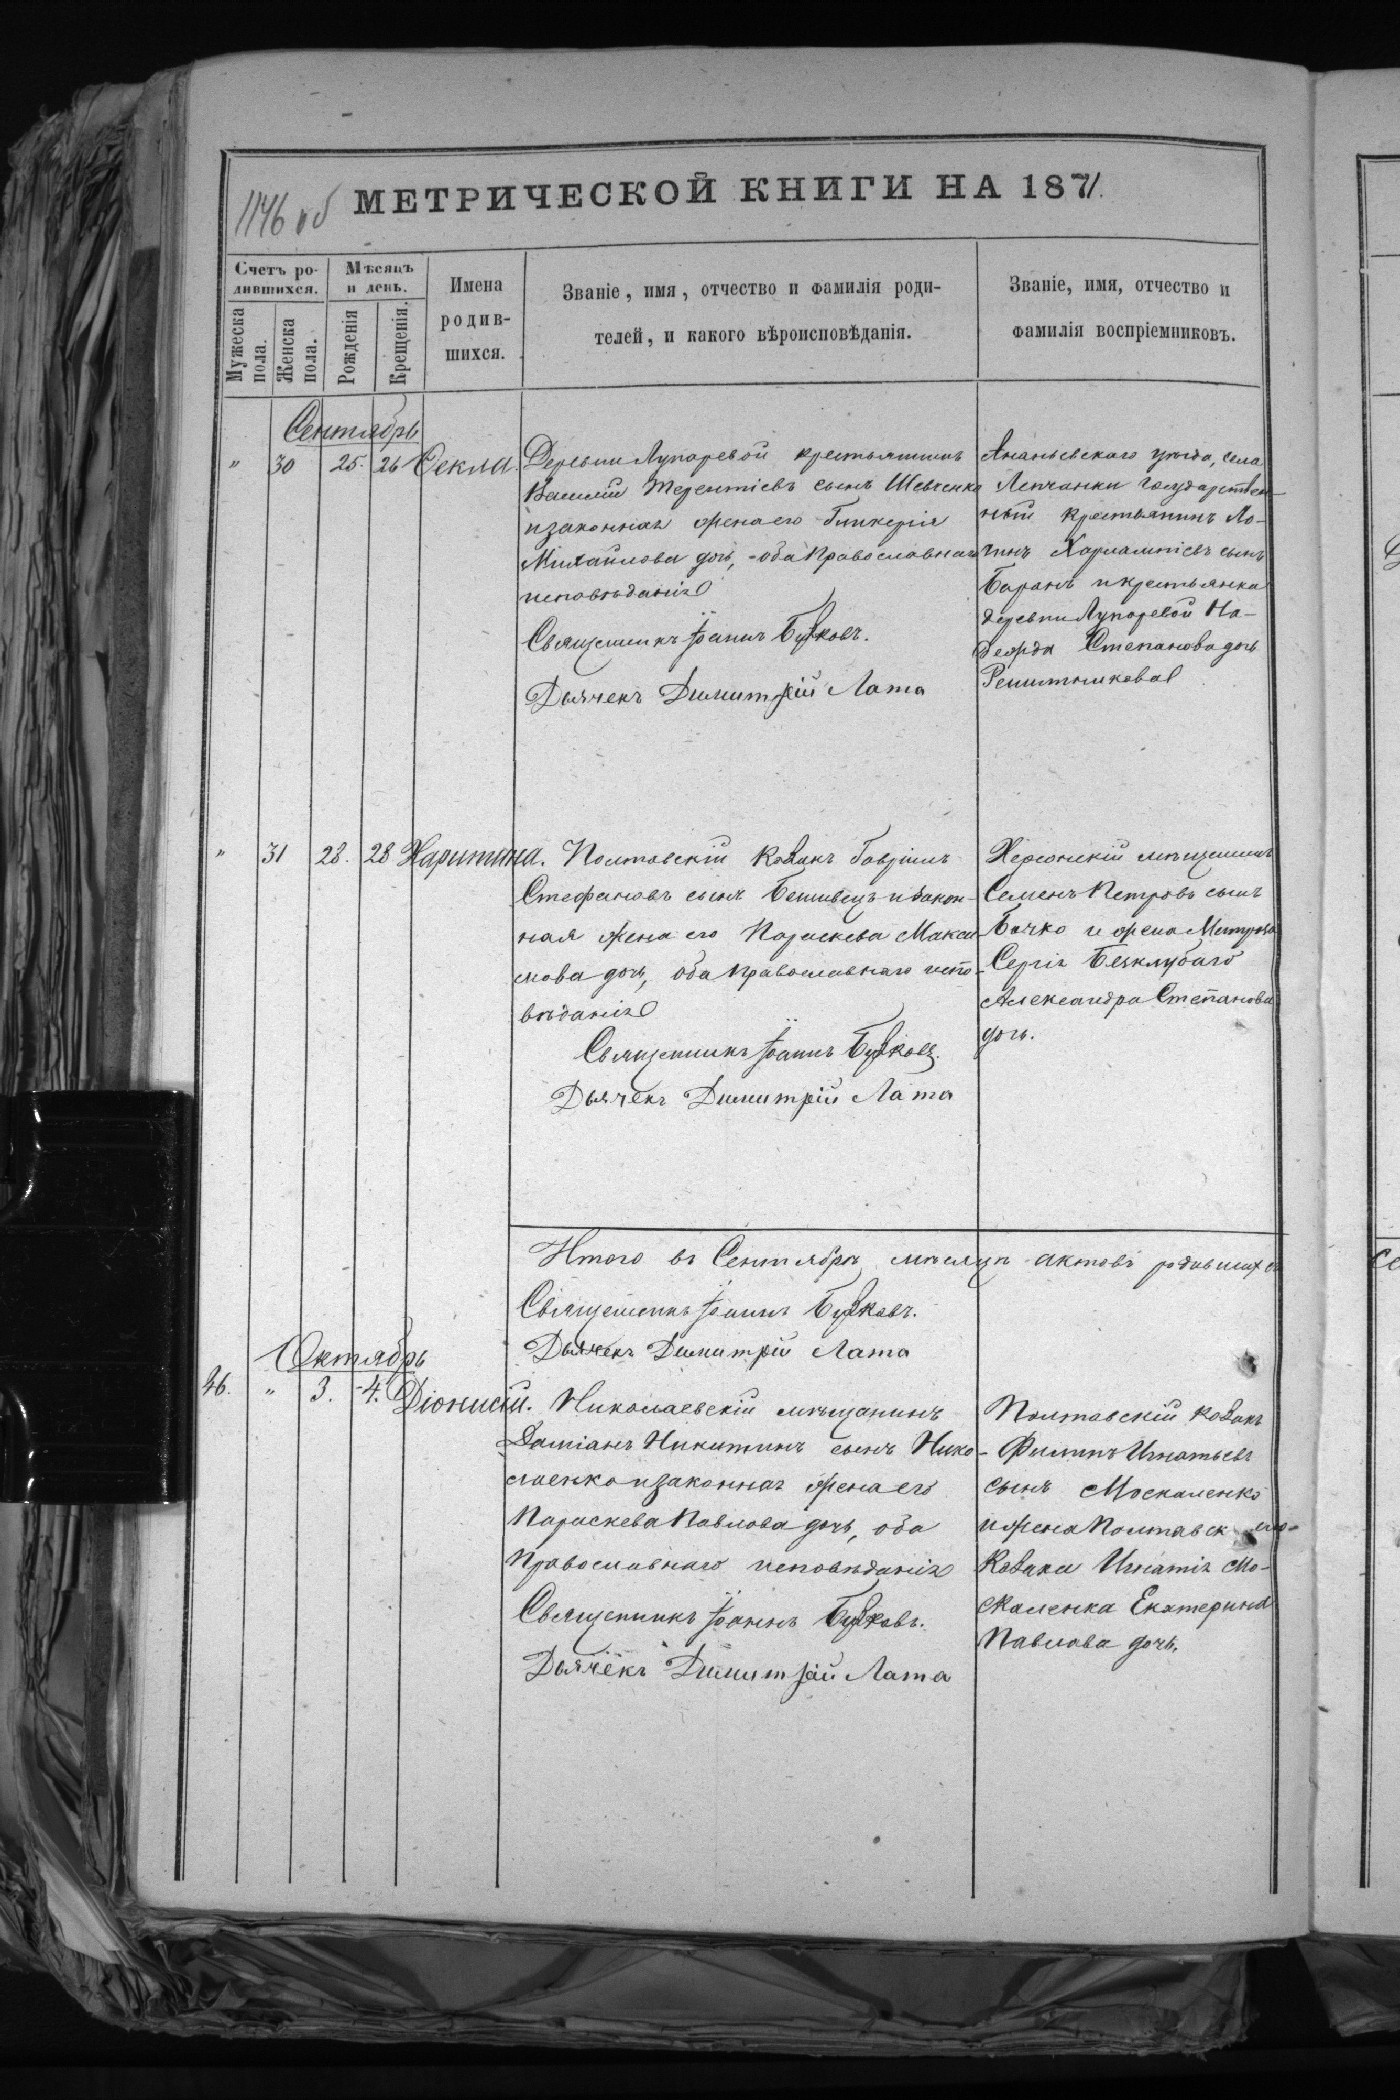 1146 об
МЕТРИЧЕСКОЙ КНИГИ НА 1871.
Счетъ ро-
дившихся.
Мужеска
пола.
Женска
пола.
Мѣсяцъ
и день.
Рожденія
Крещенія.
Имена
родив-
шихся.
Званіе, имя, отчество и фамилія роди-
телей, и какого вѣроисповѣданія.
Званіе, имя, отчество и
фамилія воспріемниковъ.
Сентябрь
" 30 25. 26 Ѳекла.
Деревни Лупаревой крестьянинъ
Василій Терентіевъ сынъ Шевченко
и законная жена его Гликерія
Михайлова дочь, - оба Православнаго
исповѣданія
Священникъ Іоаннъ
Дьячекъ Димитрій Лата
Ананьевскаго уѣзда, села
государствен-
ный крестьянинъ Ло-
гинъ Харлампіевъ сынъ
Баранъ и крестьянка
деревни Лупаревой На-
дежда Степанова дочь
" 31 28. 28 Харитина.
Полтавскій козакъ Гавріилъ
Стефановъ сынъ и закон-
ная жена его Параскева Макси
мова дочь, оба православнаго испо-
вѣданія
Священникъ Іоаннъ
Дьячекъ Димитрій Лата
Херсонскій мѣщанинъ
Семенъ Петровъ сынъ
Бачко и жена
Сергія
Александра Степанова
дочь.
Итого въ Сентябрѣ мѣсяцѣ актовъ родившихся
Священникъ Іоаннъ
Дьячекъ Димитрій Лата
Октябрь
36. " 3. 4. Діонисій.
Николаевскій мѣщанинъ
Даміанъ Никитинъ сынъ Нико-
лаенко и законная жена его
Параскева Павлова дочь, оба
православнаго исповѣданія
Священникъ Іоаннъ
Дьячёкъ Димитрій Лата
Полтавскій козакъ
Филипъ Игнатьевъ
сынъ Москаленко
и жена Полтавск аго
козака Игнатія Мо-
скаленка Екатерина
Павлова дочь.